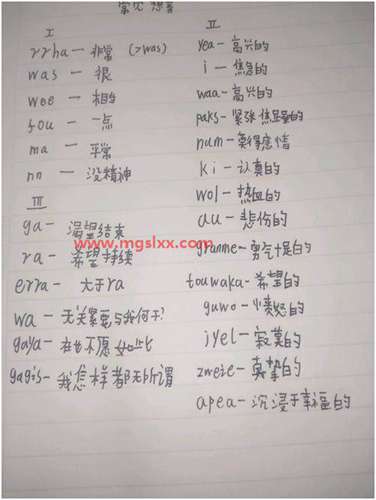 常见想音
I
rrha — 非常 (>was)
was — 很
wee — 相当
fou — 一点
ma — 平常
nn — 没精神
III
ga — 渴望结束
ra — 希望持续
erra — 大于ra
wa — 无关累要与我何干?
gaya — 在也不愿如此
gagis — 我怎样都无所谓
II
yea — 高兴的
i — 焦急的
waa — 高兴的
paks — 紧张焦虑的
num — 莫得感情
ki — 认真的
wol — 热血的
au — 悲伤的
granme — 勇气十足的
touwaka — 希望的
guwo — 愤怒的
jyel — 寂寞的
zweie — 真挚的
apea — 沉浸于幸福的
www.mgslxx.com